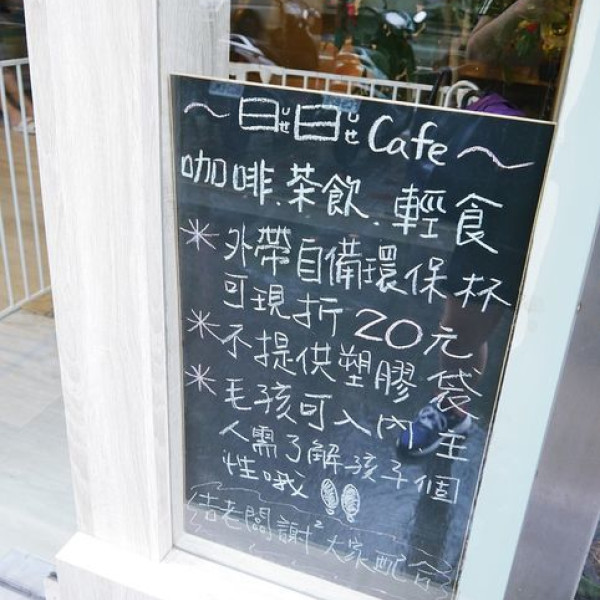 ～曰ㄩㄝ曰ㄩㄝ Cafe～
咖啡.茶飲.輕食
＊外帶自備環保杯
可現折20元
＊不提供塑膠袋
＊毛孩可入內主
人需了解孩子個
性哦
老闆謝²大家配合